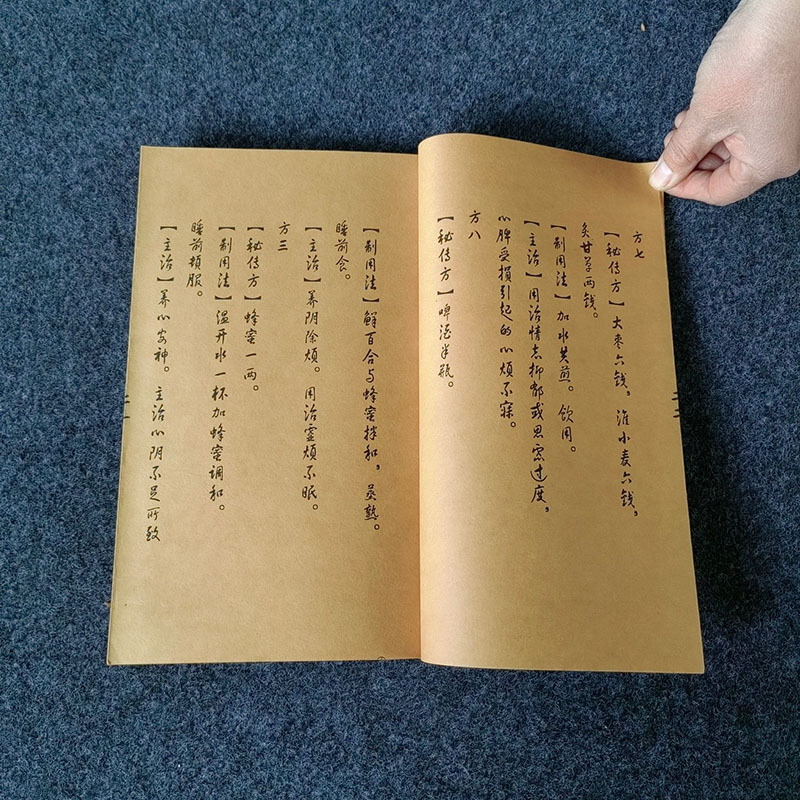 方七
【秘传方】大枣六钱，淮小麦六钱，
炙甘草两钱。
【制用法】加水共煎。饮用。
【主治】用治情志抑郁或思虑过度，
心脾受损引起的心烦不寐。
方八
【秘传方】啤酒半瓶。
【制用法】鲜百合与蜂蜜拌和，蒸熟。
睡前食。
【主治】养阴除烦。用治虚烦不眠。
方三
【秘传方】蜂蜜一两。
【制用法】温开水一杯加蜂蜜调和。
睡前顿服。
【主治】养心安神。主治心阴不足所致